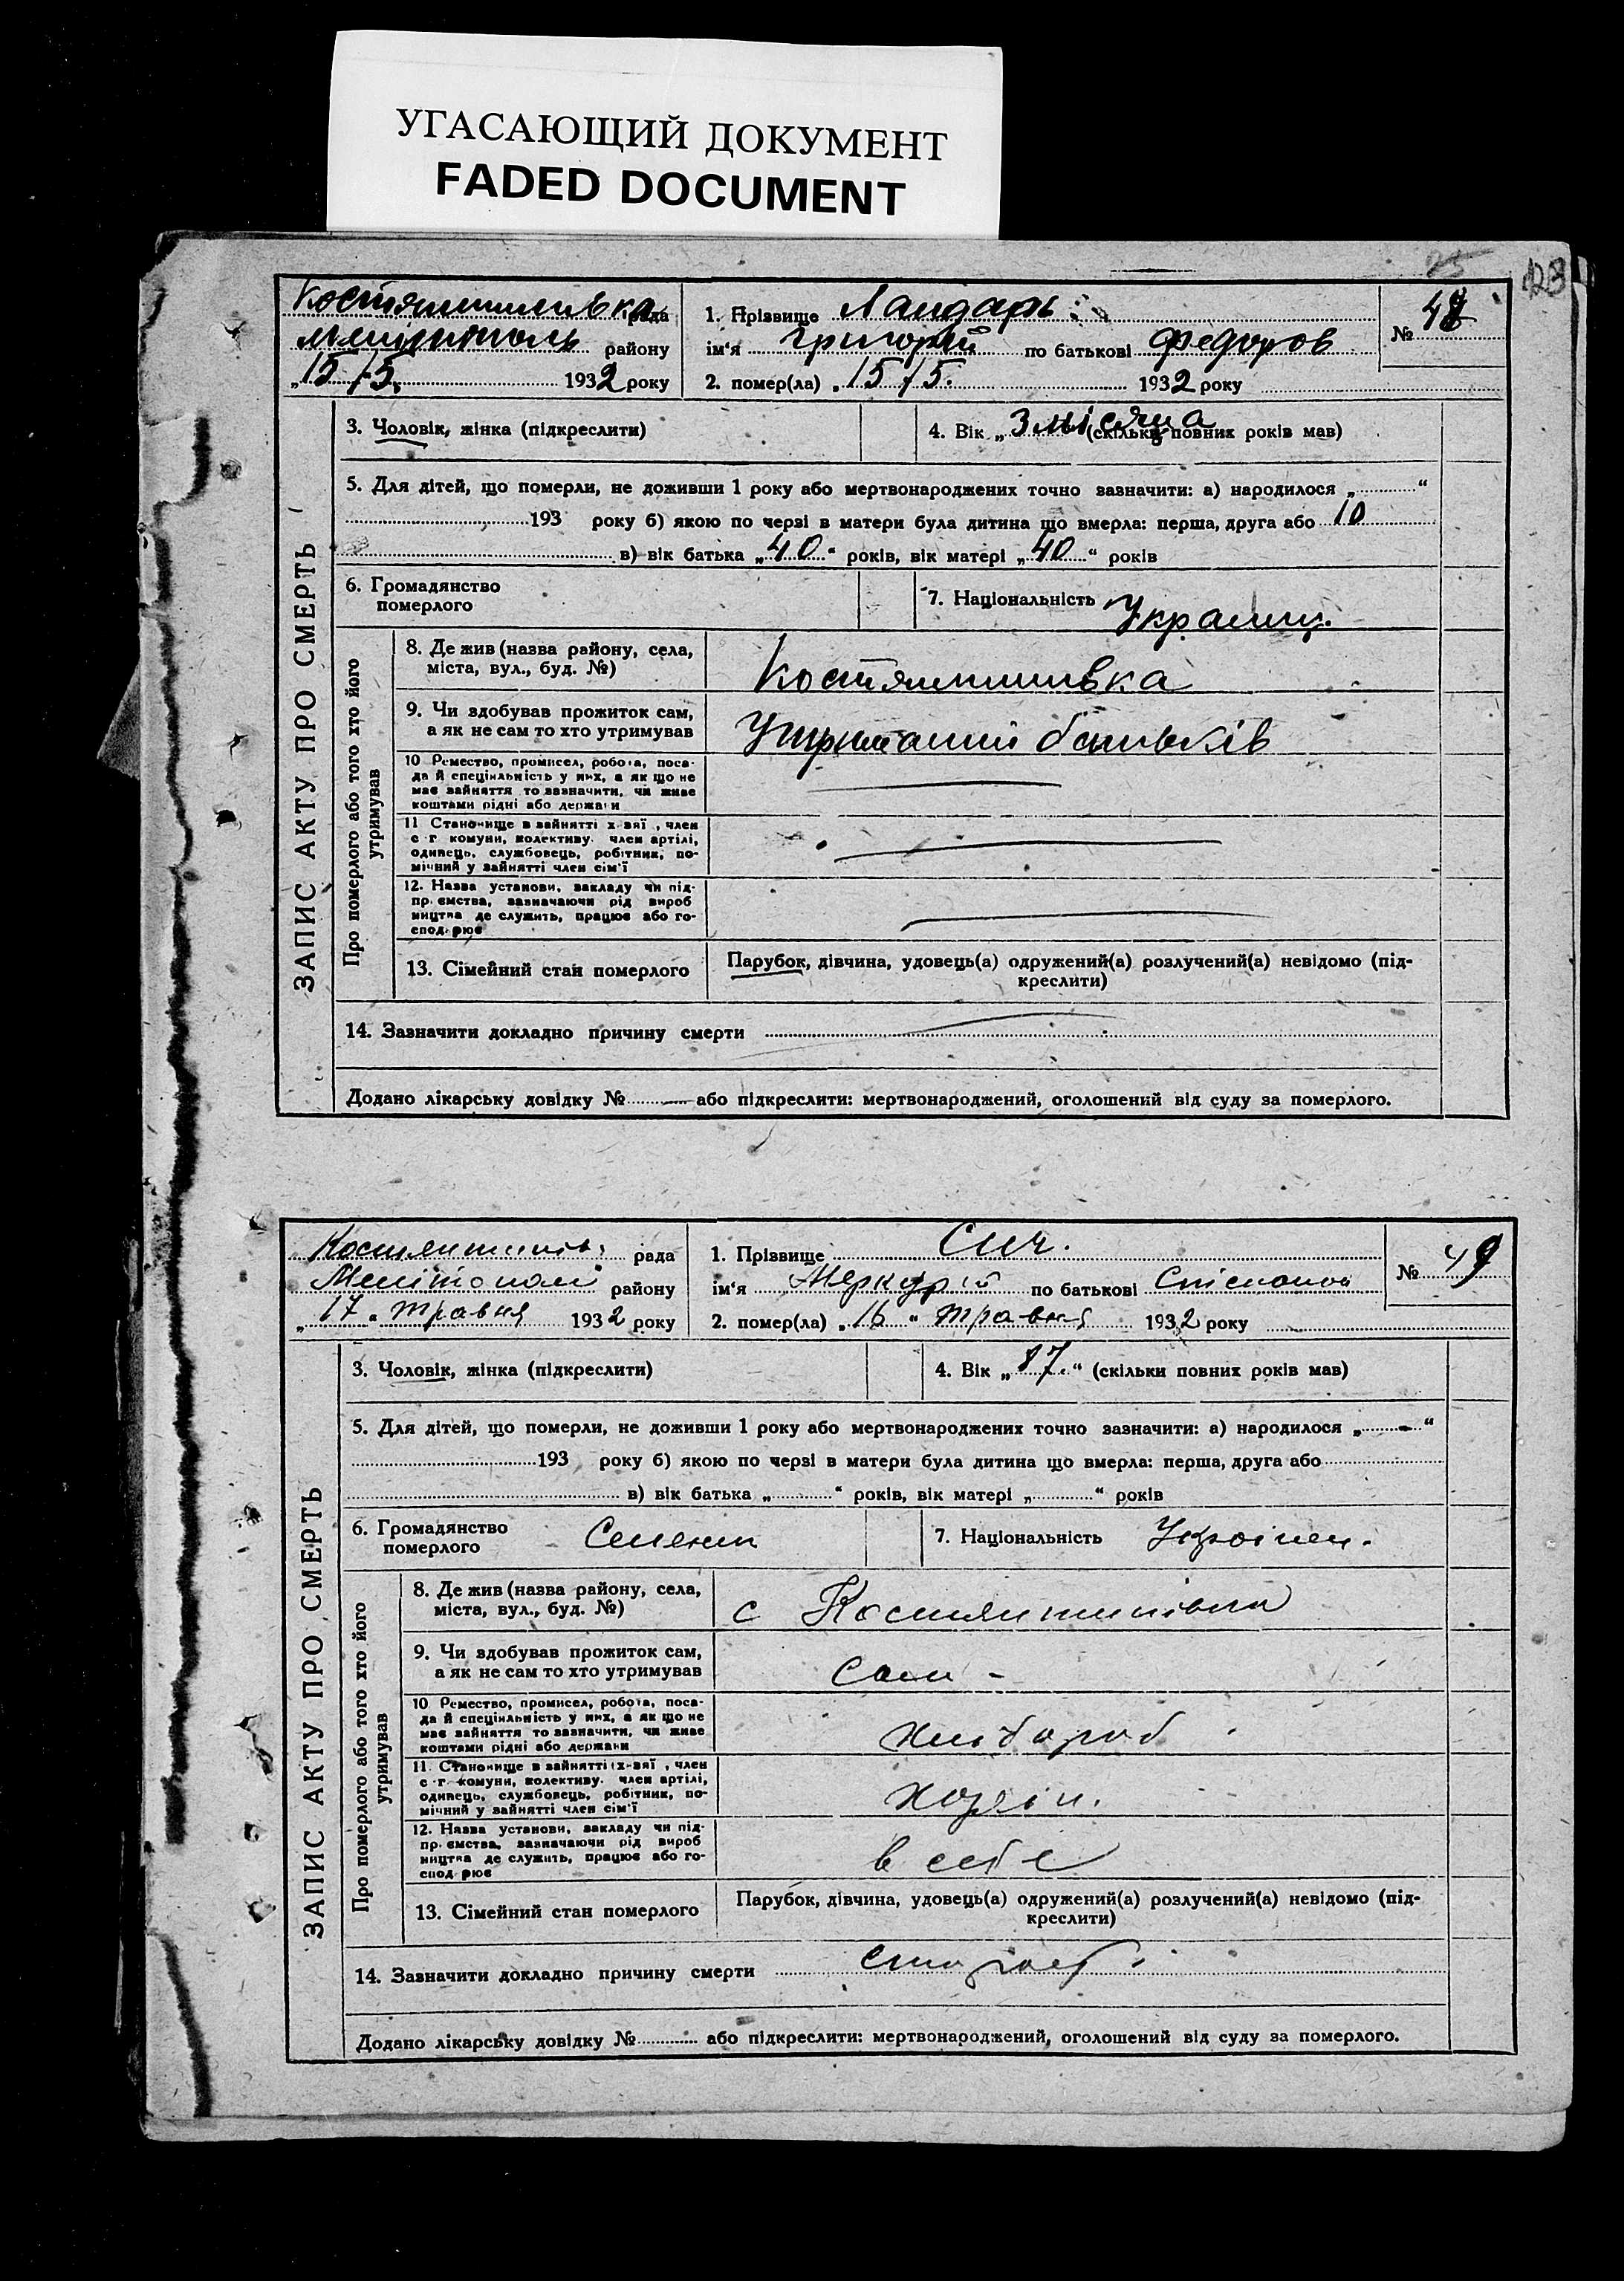 УГАСАЮЩИЙ ДОКУМЕНТ
FADED DOCUMENT
25
123
Костянтинівка рада
Мелітополь району
„15/5. 1932 року
1. Прізвище Ландарь
ім‘я Григорій по батькові Федоров
2. помер(ла) „15/5. 1932 року
№ 48
ЗАПИС АКТУ ПРО СМЕРТЬ
3. Чоловік, жінка (підкреслити)
4. Вік „3 місяца (скільки повних років мав)
5. Для дітей, що померли, не доживши 1 року або мертвонароджених точно зазначити: а) народилося „ “
193 року б) якою по черзі в матери була дитина що вмерла: перша, друга або 10
в) вік батька „40“ років, вік матері „40“ років
6. Громадянство
померлого
7. Національність Украинц.
Про померлого або того хто його
утримував
8. Де жив (назва району, села,
міста, вул., буд. №)
Костянтинівка
9. Чи здобував прожиток сам,
а як не сам то хто утримував
Утриманий батьків
10 Ремество, промисел, робота, поса-
да й спеціяльність у них, а як що не
має зайняття то зазначити, чи живе
коштами рідні або держави
11 Становище в зайнятті х-вяї, член
с-г комуни, колективу. член артілі,
одинець, службовець, робітник, по-
мічний у зайнятті член сім'ї
12. Назва установи, закладу чи під-
пр. ємства, зазначаючи рід вироб
ництва де служить, працює або го-
спод. рює
13. Сімейний стан померлого
Парубок, дівчина, удовець(а) одружений(а) розлучений(а) невідомо (під-
креслити)
14. Зазначити докладно причину смерти
Додано лікарську довідку № — або підкреслити: мертвонароджений, оголошений від суду за померлого.
Костянтинів. рада
Мелітополь району
„17“ травня 1932 року
1. Прізвище Сич.
ім‘я Меркурій по батькові
2. помер(ла) „16“ травня 1932 року
№ 49
ЗАПИС АКТУ ПРО СМЕРТЬ
3. Чоловік, жінка (підкреслити)
4. Вік „87“ (скільки повних років мав)
5. Для дітей, що померли, не доживши 1 року або мертвонароджених точно зазначити: а) народилося „—“
193 року б) якою по черзі в матери була дитина що вмерла: перша, друга або
в) вік батька „ “ років, вік матері „ “ років
6. Громадянство
померлого
Селянин
7. Національність Українец.
Про померлого або того хто його
утримував
8. Де жив (назва району, села,
міста, вул., буд. №)
с Костянтинівка
9. Чи здобував прожиток сам,
а як не сам то хто утримував
сам -
10. Ремество, промисел, робота, поса-
да й спеціяльність у них, а як що не
має зайняття то зазначити, чи живе
коштами рідні або держави
хлібороб
11. Становище в зайнятті х-вяї, член
с-г комуни, колективу. член артілі,
одинець, службовець, робітник, по-
мічний у зайнятті член сім'ї
хозяін.
12. Назва установи, закладу чи під-
пр. ємства, зазначаючи рід вироб
ництва де служить, працює або го-
спод рює
в себе
13. Сімейний стан померлого
Парубок, дівчина, удовець(а) одружений(а) розлучений(а) невідомо (під-
креслити)
14. Зазначити докладно причину смерти старость
Додано лікарську довідку № або підкреслити: мертвонароджений, оголошений від суду за померлого.